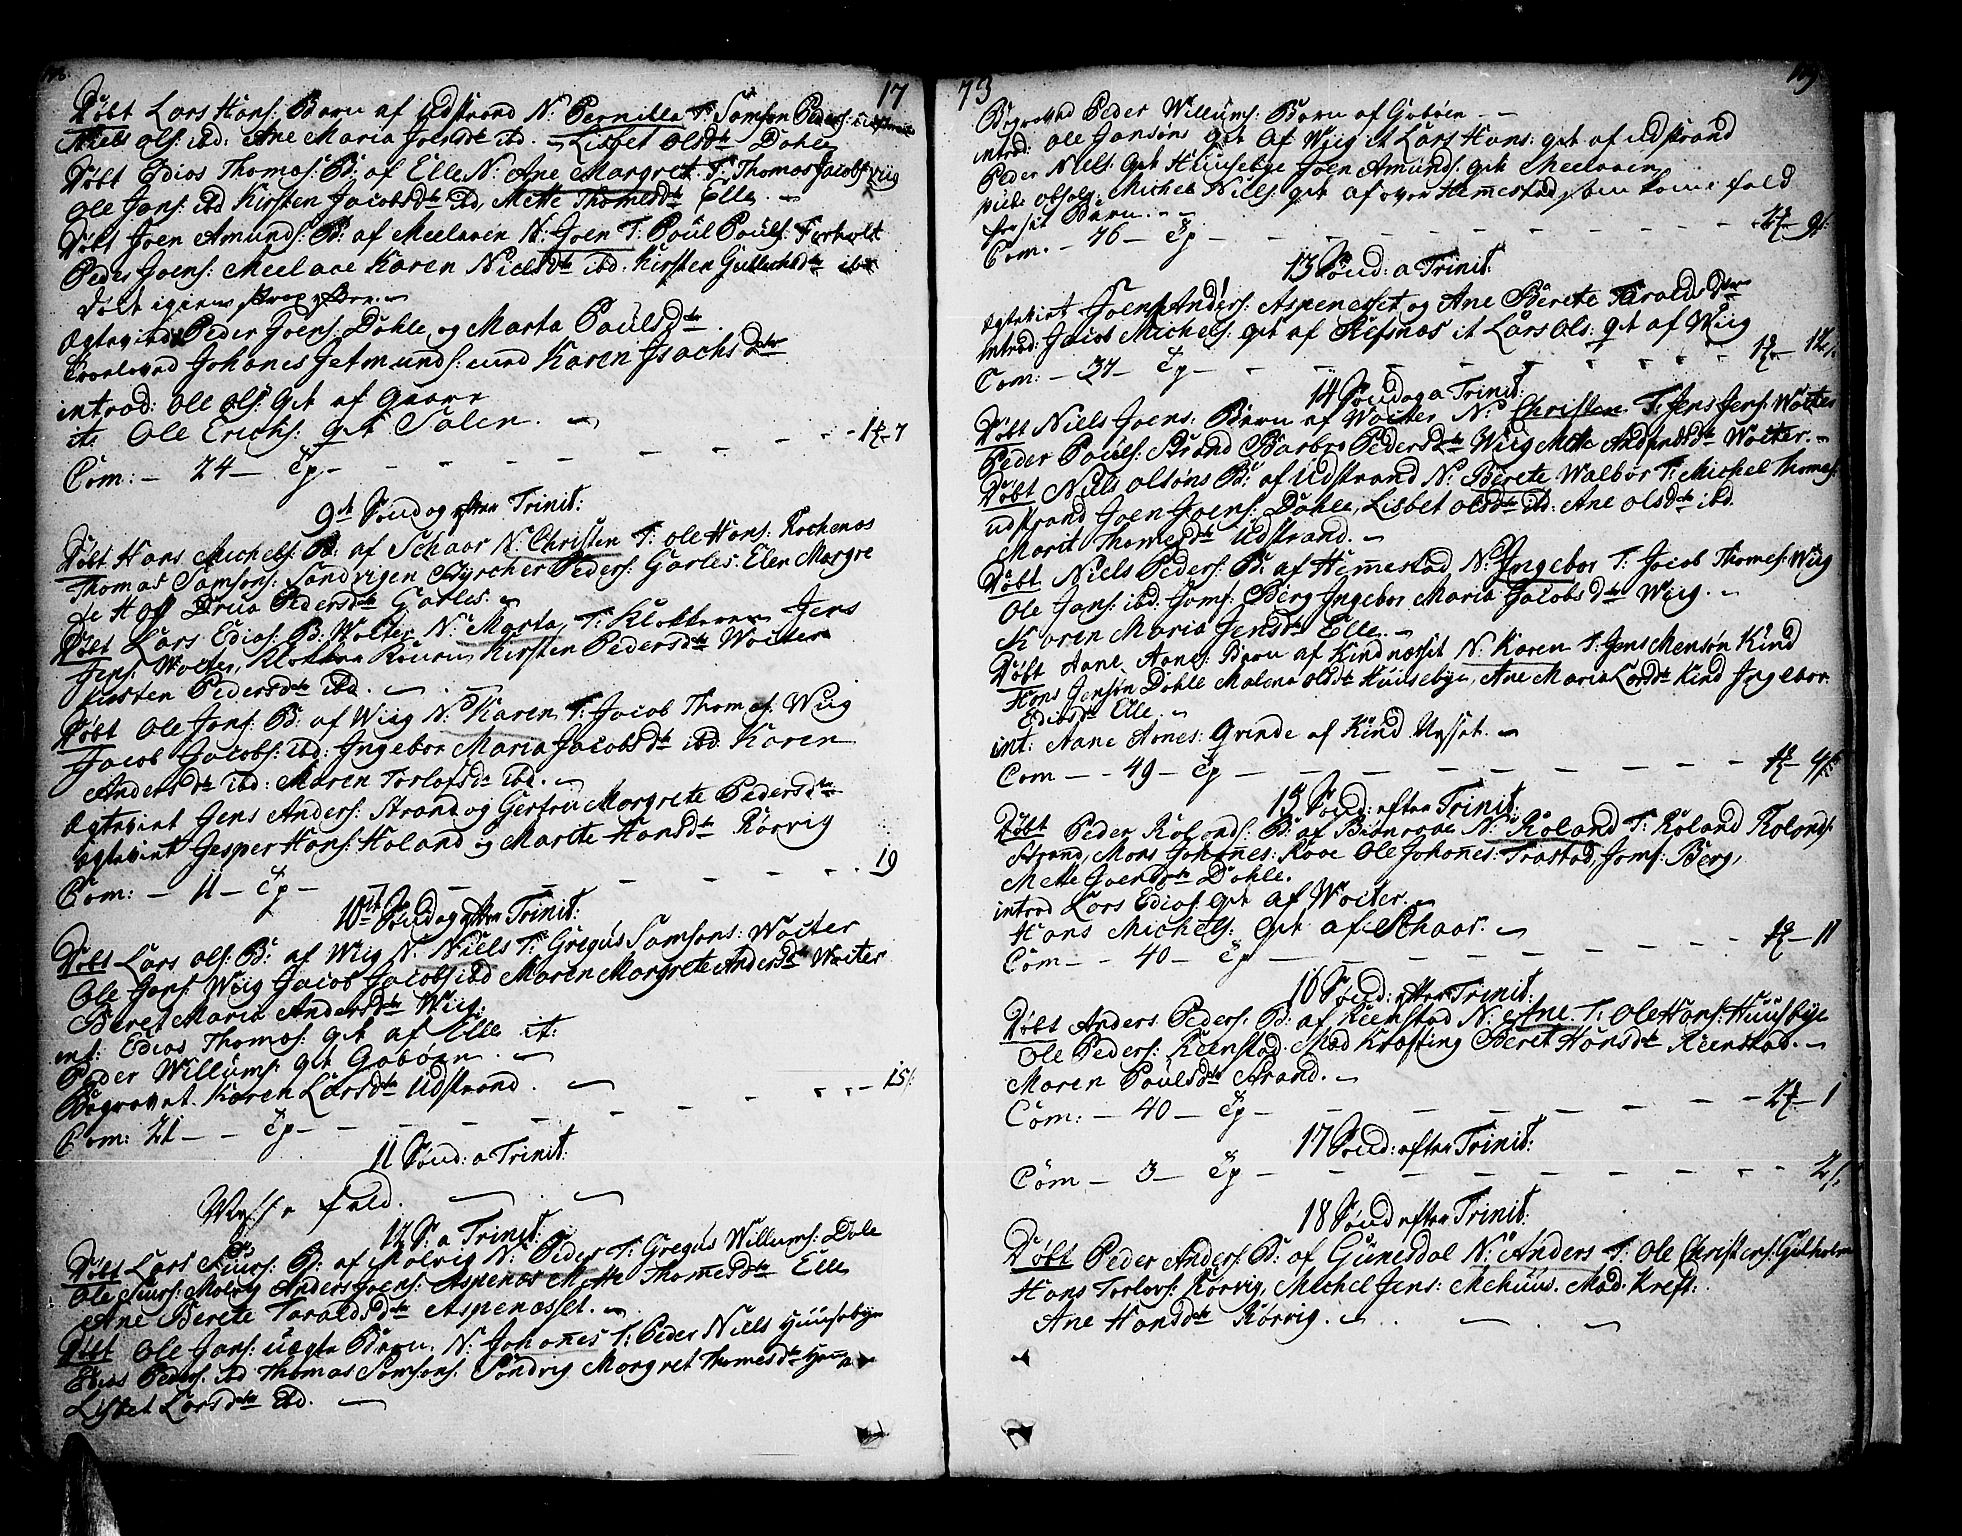 17
Døbt Lars Hans: Barn af Udstrand N: Pernilla T: Samson Peders:
Niels Ols: ibd: Ane Maria Joensdtr ibd. Lisbet Olsdtr Dahle
Døbt Edias Thomas: B: af Elle N: Ane Margret T: Thomas Jacobs: Viig
Ole Jans: ibd Kirsten Jacobsdtr ibd, Mette Thomesdtr Elle.
Døbt Joen Amunds: B: af Meelaven N: Joen T: Poul Pouls:
Peder Joens: Meelave Karen Nielsdtr ibd. Kirsten ibd
Døbt igien
Ægteviede Peder Joens: Dahle og Marta Poulsdtr.
Troelovad Johanes Jetmunds: med Karen Isachsdtr
introd: Ole Ols: q:t af Gaare
it: Ole Erichs: q:t Salen.
Com: - 24 - Cp - 12-7
9d Søndag efter Trinit:
Døbt Hans Michels: B: af Schaar N: Christen T: Ole Hans: Kochenes
Thomas Samsons: Sandvigen Peders: Garles. Elen Margre
te Hoff Drua Pedersdtr Garles.
Døbt Lars Edias: B: Woiter N: Marta, T: Klokkeren Jens
Jens: Woiter, Klokker Konen, Kirsten Pedersdtr Woiter
Kirsten Pedersdtr ibd.
Døbt Ole Jans: B: af Wiig N: Karen T: Jacob Thomas: Wiig
Jacob Jacobs: ibd: Ingebor Maria Jacobsdtr ibd Karen
Andersdtr ibd: Maren Torlofsdtr ibd.
Ægteviet Jens Anders: Strand og Gertru Margrete Pedersdtr
Ægteviet Jesper Hans: Haland og Marite Hansdtr Rörvig
Com: - 11 - Cp - 19
10d Søndag efter Trinit:
Døbt Lars Ols: B: af Wiig N: Niels T: Gregus Samsons: Woiter
Ole Jans: Wiig Jacob Jacobs: ibd Maren Margrete Andersdtr Woiter
Beret Maria Andersdtr Wiig.
int: Edias Thomas: q:t af Elle it:
Peder Willums: q:t Gabøen.
Begravet. Karen Larsdtr Udstrand.
Com: 21 - Cp - 15
11 Sønd: a Trinit:
Messe fald.
12 S: a Trinit:
Døbt Lars Siurs: B: af Molvig N: Peder T: Gregus Willums: Dale
Ole Siurs: Molvig Anders Joens: Aspenes Mette Thomesdtr Elle
Ane Berete Taraldsdtr Aspenesset.
Døbt Ole Jans: uægte Barn. N: Johanes T: Peder Niels Huusebye
Edias Peders: ibd Thomas Samsons: Sandvig Margret Thomesdtr
Lisbet Larsdtr ibd.
73
Begravad Peder Willums: Barn af Gabøen
introd: Ole Jansøns q:t af Wiig it Lars Hans: q:t af Udstrand
Peder Niels: q:t Huusebye Joen Amunds: q:t Meelaven
Michel Niels: q:t af over Hemestad,
Com. - 46 - Cp - 12-9
13 Sønd: a Trinit:
Ægteviet Joen Anders: Aspenesset og Ane Berete Taraldsdtr
introd: Jacob Michels: q:t af Refsnas it Lars Ols: q:t af Wiig
Com: - 37 - Cp - 12-12
14 Søndag a Trinit:
Døbt Niels Joens: Barn af Woiter N: Christen T: Jens Jens: Woiter
Peder Pouls: Strand Barbro Pedersdtr Wiig Mette Andersdtr Woiter.
Døbt Niels Olsöns B: af Udstrand N: Berete Walbor T: Michel Thomas:
udstrand Joen Joens: Dahle, Lisbet Olsdtr ibd. Ane Olsdtr ibd.
Marit Thomesdtr Udstrand.
Døbt Niels Peders: B: af Hemestad N: Ingebor T: Jacob Thomes: Wiig
Ole Jans: ibd. Jomf: Berg Ingebor Maria Jacobsdtr Wiig.
Karen Maria Jensdtr Elle.
Døbt Aane Aanes: Barn af Kindnesset N: Karen T: Jens Mensøn Kind
Hans Jensøn Dahle Malena Olsdtr Huusebye, Ane Maria Larsdtr Kind Ingebor
Ediasdtr Elle.
int: Aane Aanes: Qvinde af Kind Nesset.
Com - 49 - Cp - 12-4
15 Sønd: efter Trinit:
Døbt Peder Rolands: B: af Biønraae N: Roland T: Roland Rolands:
Strand, Mons Johanes: Raae Ole Johanes: Trastad, Jomf: Berg,
Mette Joensdtr Dahle.
introd Lars Edias: q:t af Woiter.
Hans Michels: q:t af Schaar.
Com - 40 - Cp - 12-11
16 Sønd: efter Trinit:
Døbt Anders Peders: B: af Reenstad N: Ane. T: Ole Hans: Huusbye
Ole Peders: Reenstad. Mad Krafting Beret Hansdtr Reenstad.
Maren Poulsdtr Strand.
Com: - 40 - Cp - 22-1
17 Sønd: after Trinit:
Com - 3 - Cp - 2
18 Sønd after Trinit:
Døbt Peder Anders: B: af Gunesdal N: Anders T: Ole Christens: Gulholm
Hans Torlovs: Rörvig, Michel Jens: Mehuus. Mad: Kreft:
Ane Hansdtr Rörvig.